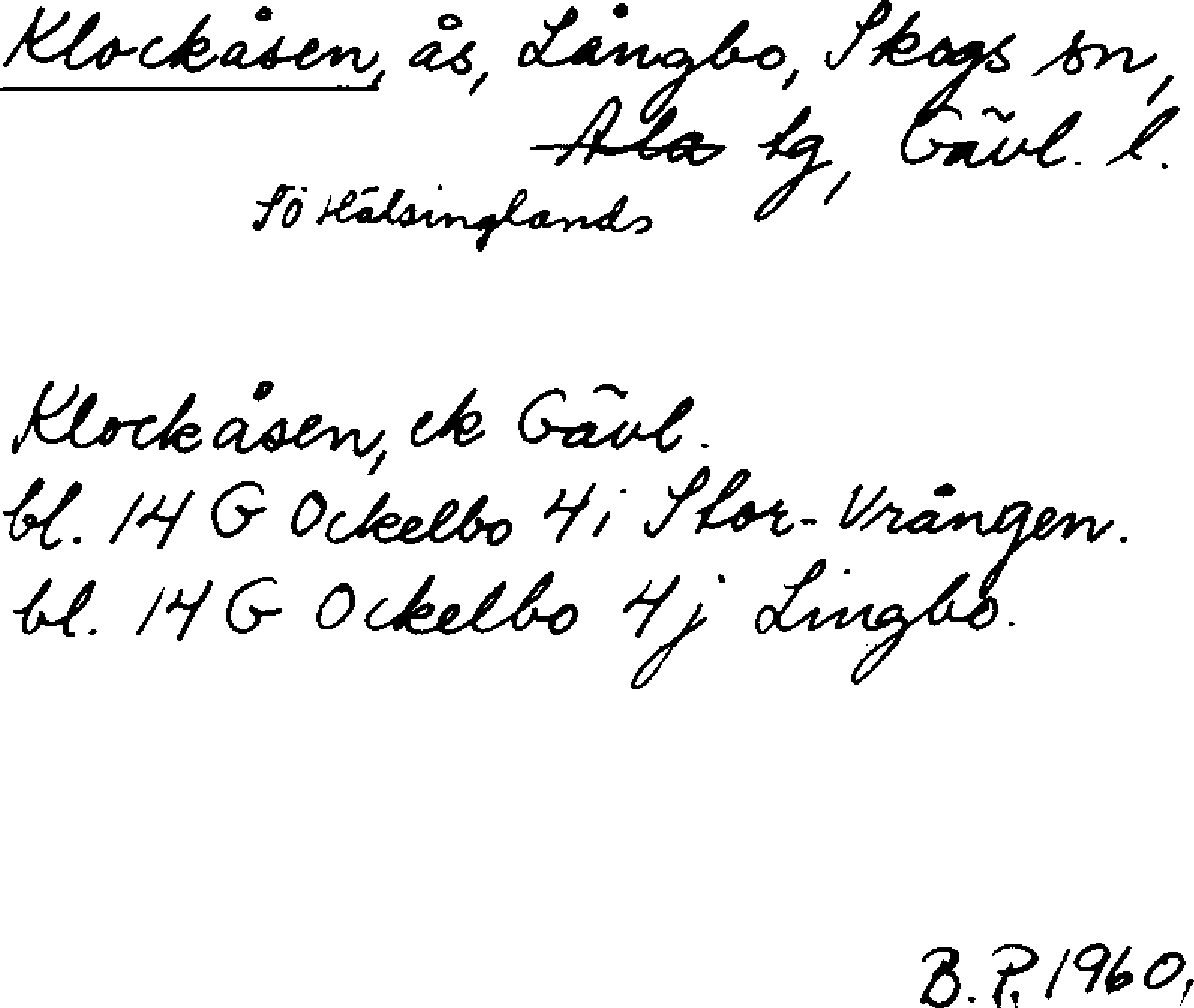 Klockåsen, ås, Långbo, Skogs sn,
Ala tg, Gävl. l.
Sö Hälsinglands
Klockåsen, ek Gävl.
bl. 14 G Ockelbo 4i Stor-Vrången.
bl. 14 G Ockelbo 4j Lingbo.
B. P. 1960.